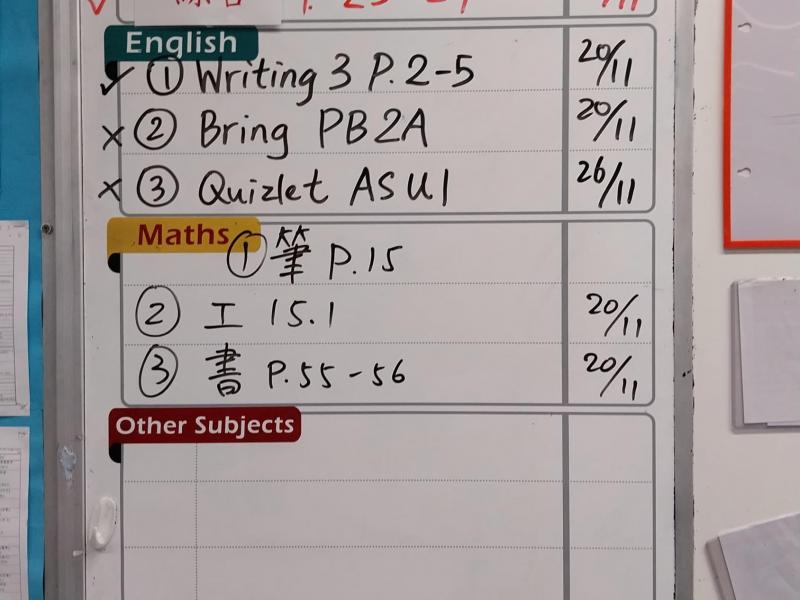 English
✓ ① Writing 3 P.2-5 20/11
× ② Bring PB2A 20/11
× ③ Quizlet ASU1 26/11
Maths
① 筆 P.15
② 工 15.1 20/11
③ 書 P.55-56 20/11
Other Subjects